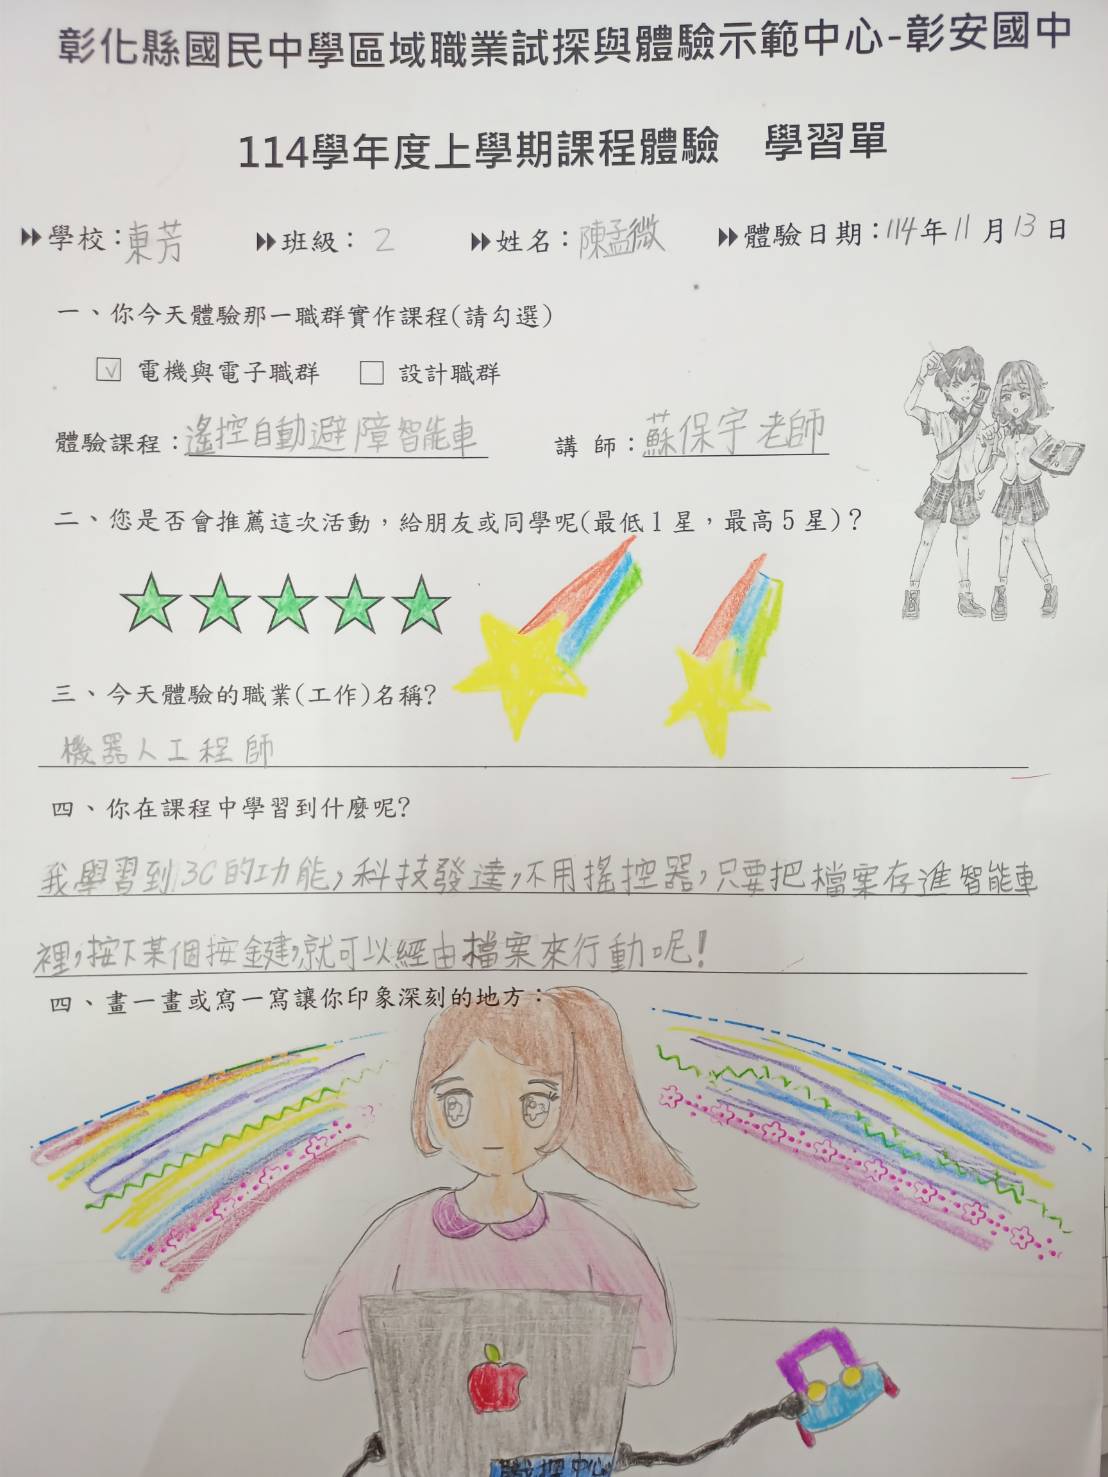 彰化縣國民中學區域職業試探與體驗示範中心-彰安國中
114學年度上學期課程體驗 學習單
學校：東芳 班級：2 姓名：陳孟微 體驗日期：114年11月13日
一、你今天體驗那一職群實作課程(請勾選)
☑ 電機與電子職群 □ 設計職群
體驗課程：遙控自動避障智能車 講 師：蘇保宇老師
二、您是否會推薦這次活動，給朋友或同學呢(最低1星，最高5星)？
三、今天體驗的職業(工作)名稱?
機器人工程師
四、你在課程中學習到什麼呢?
我學習到3C的功能，科技發達，不用搖控器，只要把檔案存進智能車
裡，按下某個按鍵，就可以經由檔案來行動呢！
四、畫一畫或寫一寫讓你印象深刻的地方：
職探中心